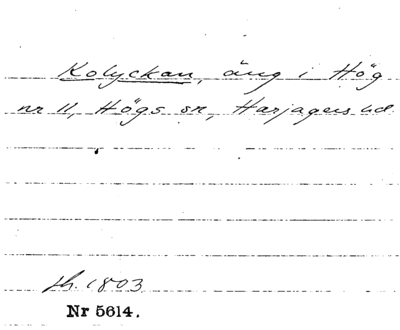 Kolyckan, äng i Hög
nr 11, Högs sn, Harjagers hd
sk. 1803
Nr 5614.